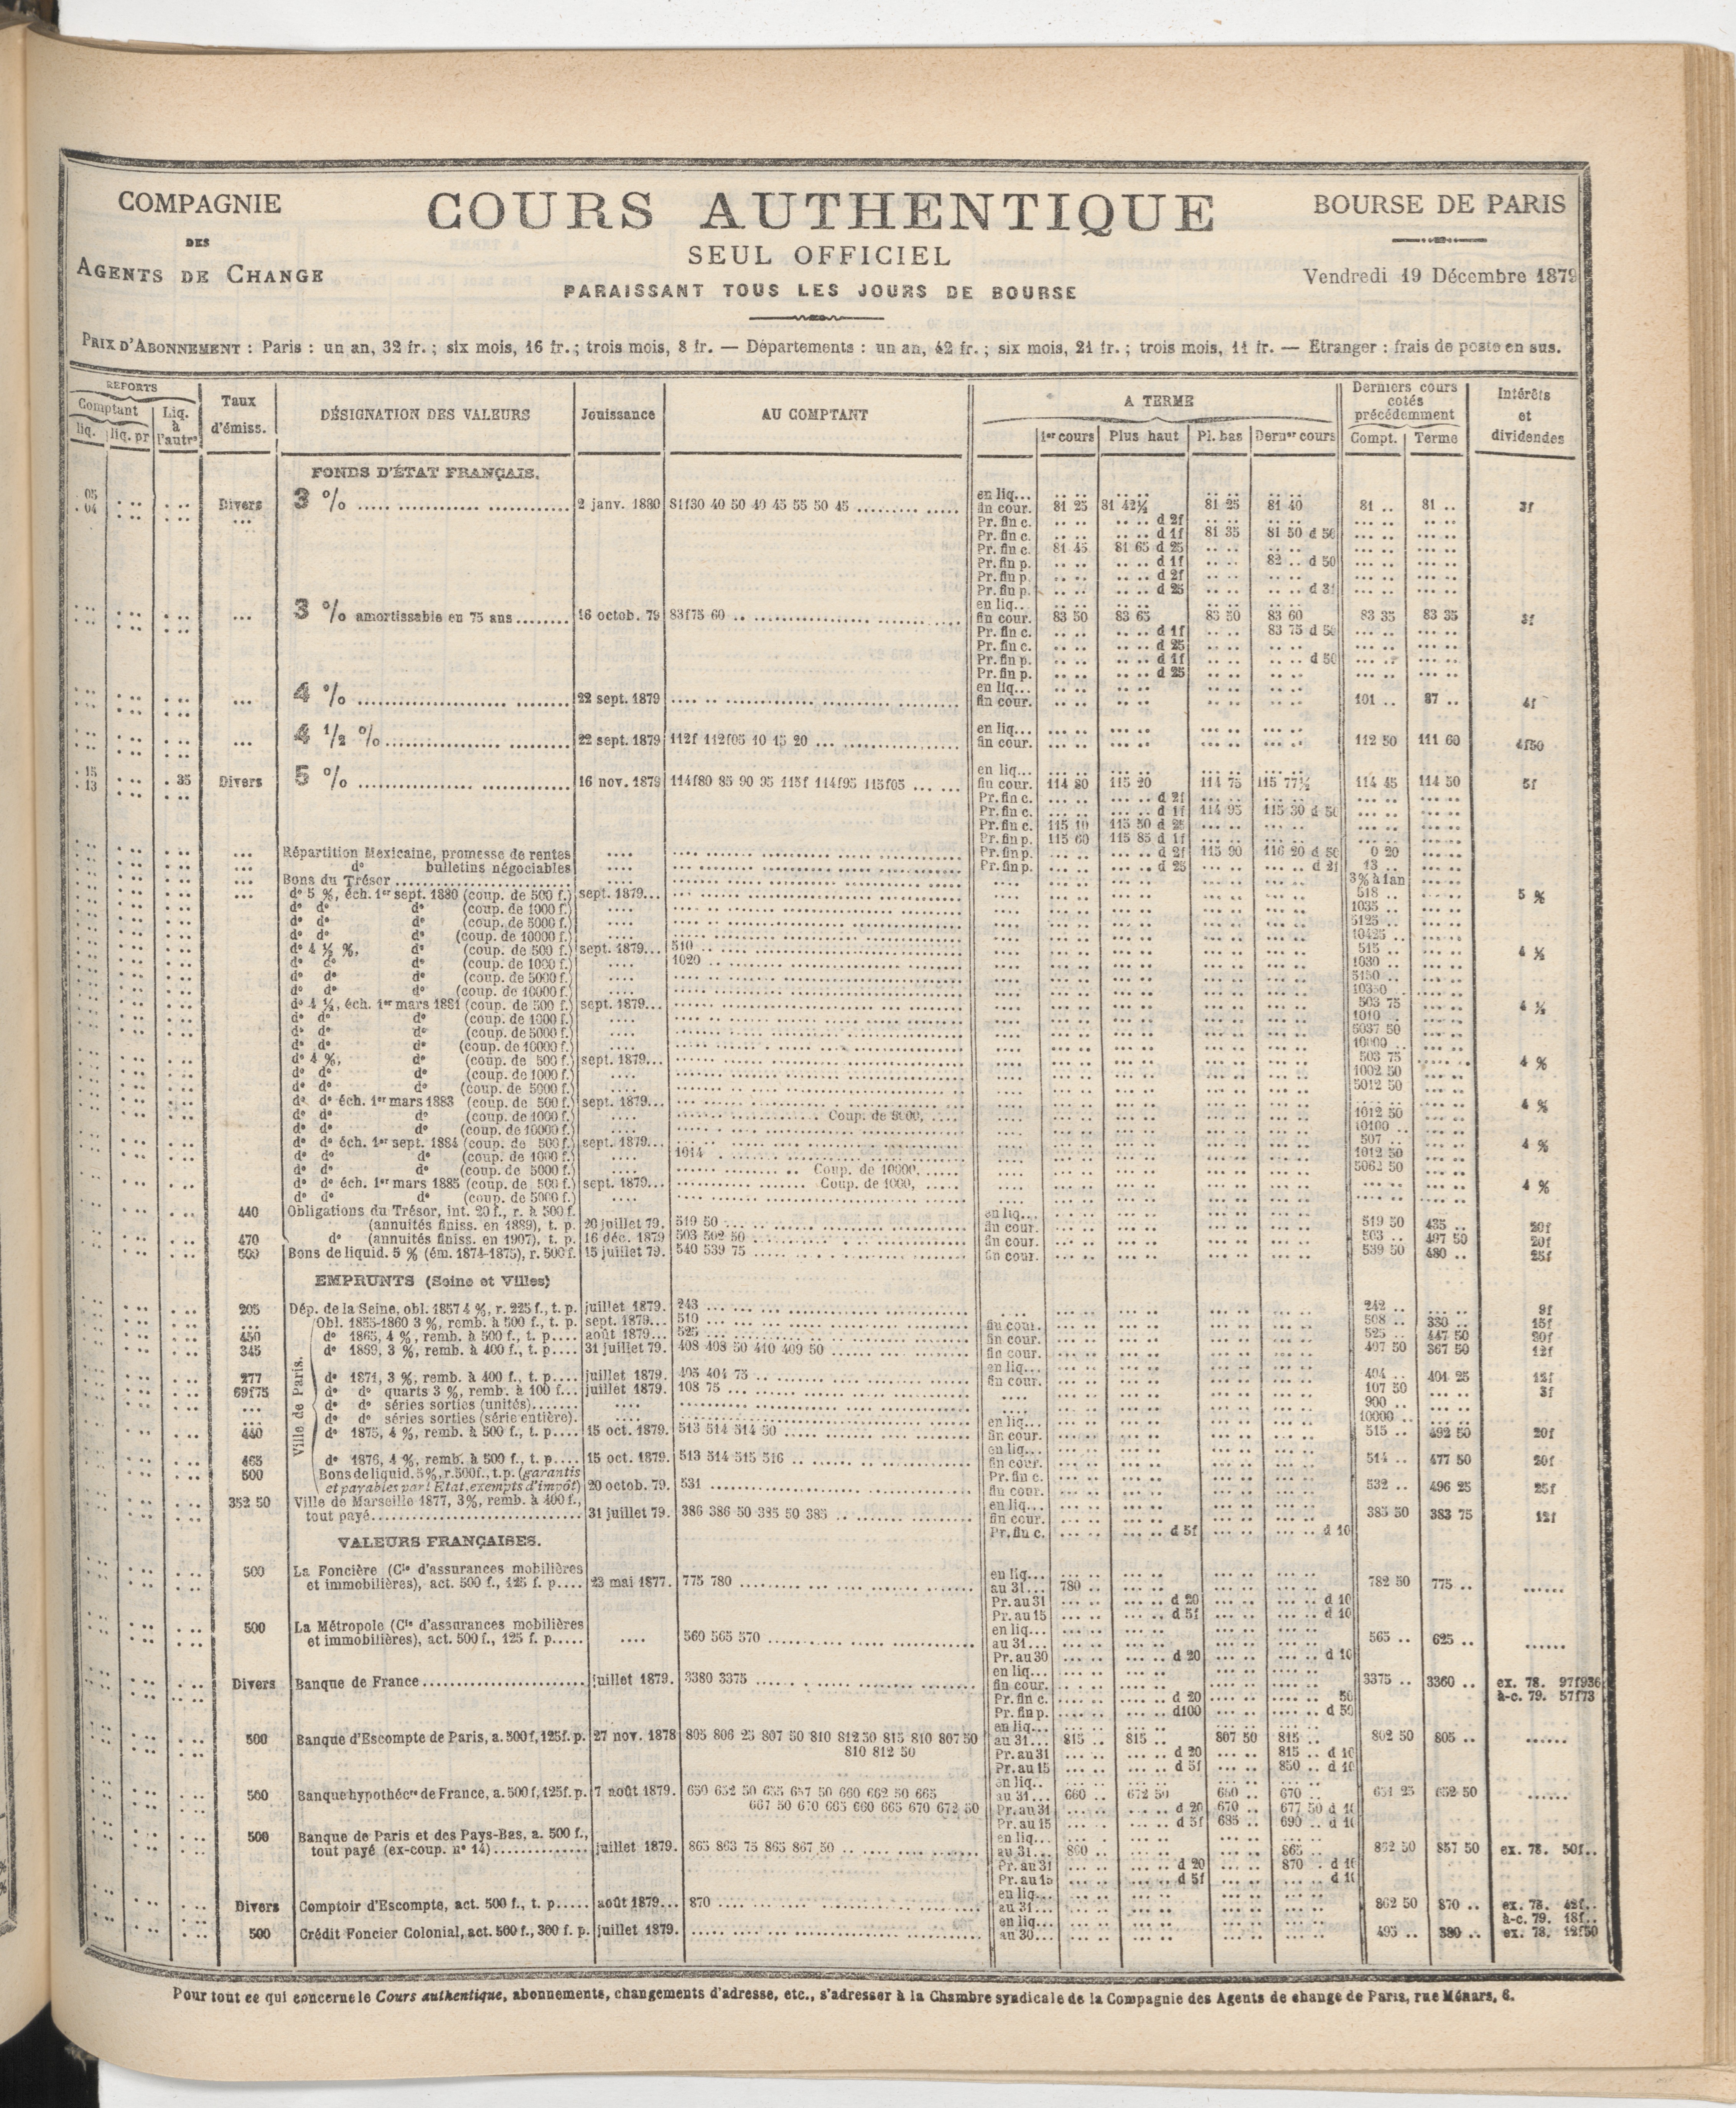 COMPAGNIE
DES
AGENTS DE CHANGE
COURS AUTHENTIQUE
SEUL OFFICIEL
PARAISSANT TOUS LES JOURS DE BOURSE
BOURSE DE PARIS
Vendredi 19 Décembre 1879
PRIX D'ABONNEMENT : Paris : un an, 32 fr. ; six mois, 16 fr. ; trois mois, 8 fr. — Départements : un an, 42 fr. ; six mois, 21 fr. ; trois mois, 11 fr. — Etranger : frais de poste en sus.
REPORTS
Comptant
liq. liq. pr
Liq. à l'autre
Taux d'émiss.
DÉSIGNATION DES VALEURS
Jouissance
AU COMPTANT
A TERME
1er cours Plus haut Pl. bas Dernier cours
Derniers cours cotés précédemment
Compt. Terme
Intérêts et dividendes
FONDS D'ÉTAT FRANÇAIS.
en liq...
05 04 Divers 3 % 2 janv. 1880 81f30 40 50 40 45 55 50 45 fin cour. 81 25 81 42½ 81 25 81 40 81 .. 81 .. 3f
Pr. fin c. d 2f
Pr. fin c. d 1f 81 35 81 50 d 50
Pr. fin c. 81 45 81 65 d 25
Pr. fin p. d 1f 82 .. d 50
Pr. fin p. d 2f
Pr. fin p. d 25
en liq...
3 % amortissable en 75 ans 16 octob. 79 83f75 60 fin cour. 83 50 83 65 83 50 83 60 83 35 83 35 3f
Pr. fin c. d 1f 83 75 d 50
Pr. fin c. d 25
Pr. fin p. d 1f d 50
Pr. fin p. d 25
en liq...
4 % 22 sept. 1879 fin cour. 101 .. 87 .. 4f
en liq...
4 1/2 % 22 sept. 1879 112f 112f05 10 15 20 fin cour. 112 50 111 60 4f50
en liq...
15 13 35 Divers 5 % 16 nov. 1879 114f80 85 90 95 115f 114f95 115f05 fin cour. 114 80 115 20 114 75 115 77½ 114 45 114 50 5f
Pr. fin c. d 2f
Pr. fin c. d 1f 114 95 115 30 d 50
Pr. fin c. 115 10 115 50 d 25
Pr. fin p. 115 60 115 85 d 1f
Répartition Mexicaine, promesse de rentes Pr. fin p. d 2f 115 90 116 20 d 50 0 20
do bulletins négociables Pr. fin p. d 25 d 2f 13 ..
Bons du Trésor 3% à 1 an
do 5 %, éch. 1er sept. 1880 (coup. de 500 f.) sept. 1879... 518 .. 5 %
do do do (coup. de 1000 f.) 1035 ..
do do do (coup. de 5000 f.) 5125 ..
do do do (coup. de 10000 f.) 10425 ..
do 4 ½ %, do (coup. de 500 f.) sept. 1879... 510 .. 515 .. 4 ½
do do do (coup. de 1000 f.) 1020 .. 1030 ..
do do do (coup. de 5000 f.) 5150 ..
do do do (coup. de 10000 f.)
do 4 ½, éch. 1er mars 1881 (coup. de 500 f.) sept. 1879... 503 75 4 ½
do do do (coup. de 1000 f.) 1010 ..
do do do (coup. de 5000 f.) 5037 50
do do do (coup. de 10000 f.) 10000 ..
do 4 %, do (coup. de 500 f.) sept. 1879... 503 75 4 %
do do do (coup. de 1000 f.) 1002 50
do do do (coup. de 5000 f.) 5012 50
do do éch. 1er mars 1883 (coup. de 500 f.) sept. 1879... 4 %
do do do (coup. de 1000 f.) 1012 50
do do do (coup. de 10000 f.) 10100 ..
do do éch. 1er sept. 1884 (coup. de 500 f.) sept. 1879... 507 .. 4 %
do do do (coup. de 1000 f.) 1014 .. 1012 50
do do do (coup. de 5000 f.) Coup. de 10000, 5062 50
do do éch. 1er mars 1885 (coup. de 500 f.) sept. 1879... Coup. de 1000, 4 %
do do do (coup. de 5000 f.)
440 Obligations du Trésor, int. 20 f., r. à 500 f. en liq...
(annuités finiss. en 1889), t. p. 20 juillet 79. 519 50 fin cour. 519 50 435 .. 20f
470 do (annuités finiss. en 1907), t. p. 16 déc. 1879 503 502 50 fin cour. 503 .. 497 50 20f
500 Bons de liquid. 5 % (ém. 1874-1875), r. 500 f. 15 juillet 79. 540 539 75 fin cour. 539 50 480 .. 25f
EMPRUNTS (Seine et Villes)
205 Dép. de la Seine, obl. 1857 4 %, r. 225 f., t. p. juillet 1879. 243 242 .. 9f
Ville de Paris.
Obl. 1855-1860 3 %, remb. à 500 f., t. p. sept. 1879... 510 fin cour. 508 .. 330 .. 15f
450 do 1865, 4 %, remb. à 500 f., t. p.... août 1879... 525 fin cour. 525 .. 447 50 20f
345 do 1869, 3 %, remb. à 400 f., t. p.... 31 juillet 79. 408 408 50 410 409 50 fin cour. 407 50 367 50 12f
en liq...
277 do 1871, 3 %, remb. à 400 f., t. p.... juillet 1879. 405 404 75 fin cour. 404 .. 401 25 12f
69f75 do do quarts 3 %, remb. à 100 f... juillet 1879. 108 75 107 50 3f
do do séries sorties (unités) 900 ..
do do séries sorties (série entière). en liq... 10000 ..
440 do 1875, 4 %, remb. à 500 f., t. p.... 15 oct. 1879. 513 514 514 50 fin cour. 515 .. 492 50 20f
en liq...
465 do 1876, 4 %, remb. à 500 f., t. p.... 15 oct. 1879. 513 514 515 516 fin cour. 514 .. 477 50 20f
500 Bons de liquid. 5%, r. 500f., t. p. (garantis Pr. fin c.
et payables par l'Etat, exempts d'impôt) 20 octob. 79. 531 fin cour. 532 .. 496 25 25f
352 50 Ville de Marseille 1877, 3%, remb. à 400 f., en liq...
tout payé 31 juillet 79. 386 386 50 385 50 385 fin cour. 385 50 383 75 12f
Pr. fin c. d 5f d 10
VALEURS FRANÇAISES.
500 La Foncière (Cie d'assurances mobilières en liq...
et immobilières), act. 500 f., 125 f. p.... 23 mai 1877. 775 780 au 31... 780 .. 782 50 775 ..
Pr. au 31 d 20 d 10
Pr. au 15 d 5f d 10
500 La Métropole (Cie d'assurances mobilières en liq...
et immobilières), act. 500 f., 125 f. p..... 560 565 570 au 31... 565 .. 625 ..
Pr. au 30 d 20 d 10
en liq...
Divers Banque de France juillet 1879. 3380 3375 fin cour. 3375 .. 3360 .. ex. 78. 97f936
Pr. fin c. d 20 50 à-c. 79. 57f73
Pr. fin p. d100 d 50
en liq...
500 Banque d'Escompte de Paris, a. 500f, 125f. p. 27 nov. 1878 805 806 25 807 50 810 812 50 815 810 807 50 au 31... 815 .. 815 .. 807 50 815 .. 802 50 805 ..
810 812 50 Pr. au 31 d 20 815 .. d 10
Pr. au 15 d 5f 850 .. d 10
en liq..
500 Banque hypothécre de France, a. 500 f, 125f. p. 7 août 1879. 650 652 50 655 657 50 660 662 50 665 au 31... 660 .. 672 50 660 .. 670 .. 651 25 652 50
667 50 670 665 660 665 670 672 50 Pr. au 31 d 20 670 .. 677 50 d 10
Pr. au 15 d 5f 685 .. 690 .. d 10
500 Banque de Paris et des Pays-Bas, a. 500 f., en liq...
tout payé (ex-coup. no 14) juillet 1879. 865 863 75 865 867 50 au 31... 860 .. 865 .. 862 50 857 50 ex. 78. 50f..
Pr. au 31 d 20 870 .. d 10
Pr. au 15 d 5f d 10
en liq...
Divers Comptoir d'Escompte, act. 500 f., t. p..... août 1879... 870 au 31... 862 50 870 .. ex. 78. 42f..
en liq... à-c. 79. 18f..
500 Crédit Foncier Colonial, act. 500 f., 300 f. p. juillet 1879. au 30... 495 .. 380 .. ex. 78. 12f50
Pour tout ce qui concerne le Cours authentique, abonnements, changements d'adresse, etc., s'adresser à la Chambre syndicale de la Compagnie des Agents de change de Paris, rue Ménars, 6.